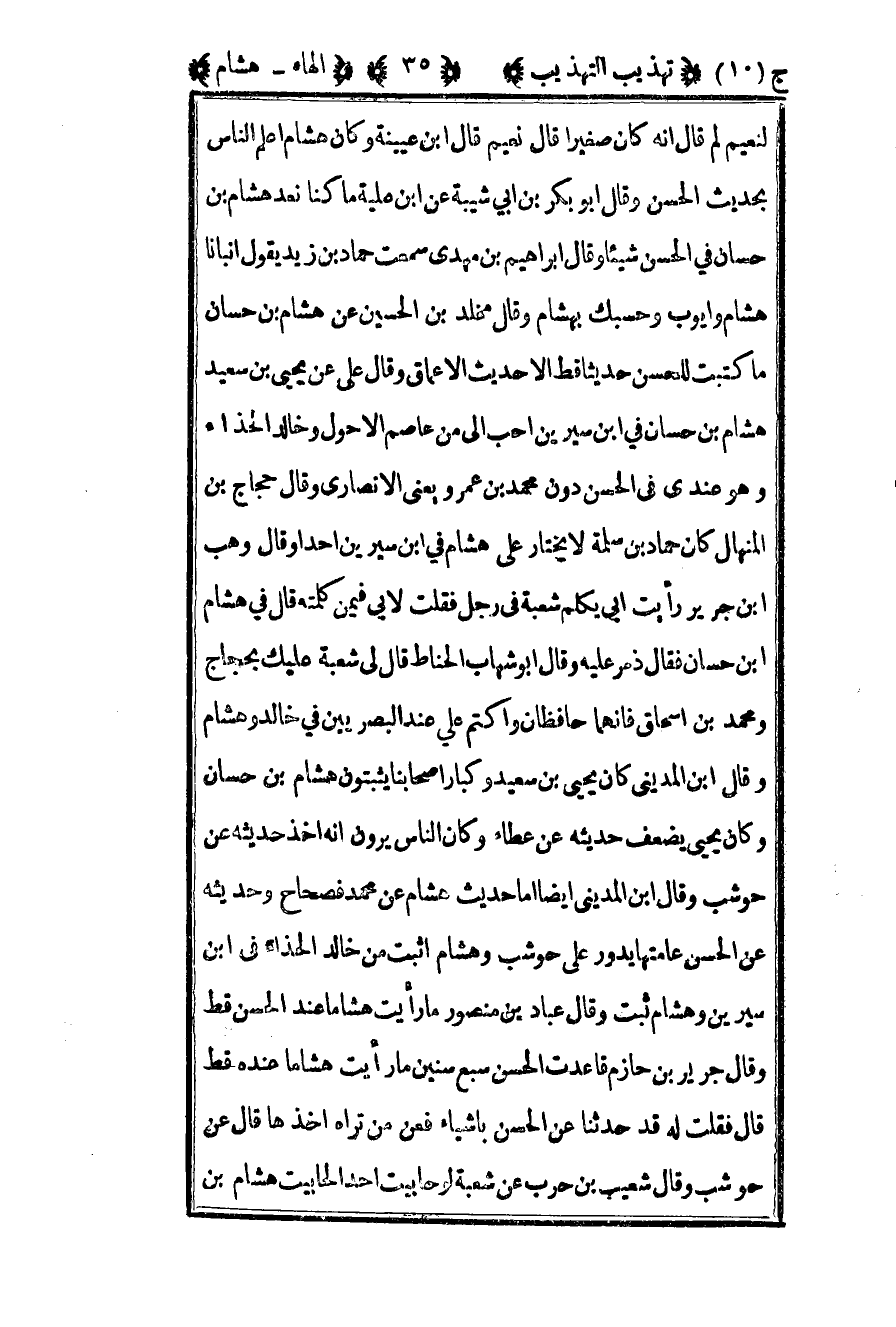 ج (١٠) ﴿ تهذيب التهذيب ﴾ ﴿ ٣٥ ﴾ ﴿ الهاء ـ هشام ﴾
لنعيم لم قال انه كان صغيرا قال نعيم قال ابن عيينة وكان هشام اعلم الناس
بحديث الحسن وقال ابو بكر بن ابي شيبة عن ابن علية ما كنا نعد هشام بن
حسان في الحسن شيئا وقال ابراهيم بن مهدى سمعت حماد بن زيد يقول انبانا
هشام وايوب وحسبك بهشام وقال مخلد بن الحسين عن هشام بن حسان
ما كتبت للحسن حديثا قط الا حديث الاعماق وقال علي عن يحيى بن سعيد
هشام بن حسان في ابن سيرين احب الى من عاصم الاحول وخالد الحذاء
وهو عندى فى الحسن دون محمد بن عمرو يعنى الانصارى وقال حجاج بن
المنهال كان حماد بن سلمة لا يختار على هشام في ابن سيرين احدا وقال وهب
ابن جرير رأيت ابي يكلم شعبة فى رجل فقلت لابي فيمن كلمته قال في هشام
ابن حسان فقال ذمر عليه وقال ابو شهاب الحناط قال لى شعبة عليك بحجاج
ومحمد بن اسحاق فانهما حافظان واكتم علي عند البصريين في خالد وهشام
وقال ابن المدينى كان يحيى بن سعيد وكبار اصحابنا يثبتون هشام بن حسان
وكان يحيى يضعف حديثه عن عطاء وكان الناس يرون انه اخذ حديثه عن
حوشب وقال ابن المدينى ايضا اما حديث هشام عن محمد فصحاح وحديثه
عن الحسن عامتها يدور على حوشب وهشام اثبت من خالد الحذاء فى ابن
سيرين وهشام ثبت وقال عباد بن منصور ما رأيت هشاما عند الحسن قط
وقال جرير بن حازم قاعدت الحسن سبع سنين ما رأيت هشاما عنده قط
قال فقلت له قد حدثنا عن الحسن باشياء فعن من تراه اخذها قال عن
حوشب وقال شعيب بن حرب عن شعبة لو حابيت احدا لحابيت هشام بن